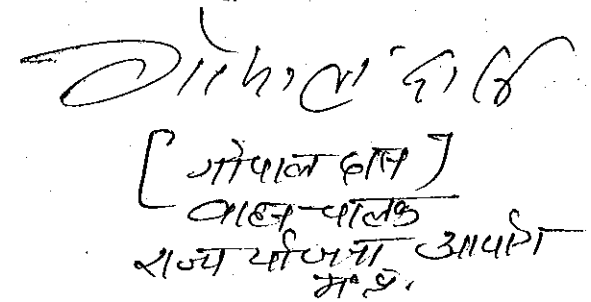 गोपाल दास
[गोपाल दास]
वाहन-चालक
राज्य योजना आयोग
म.प्र.